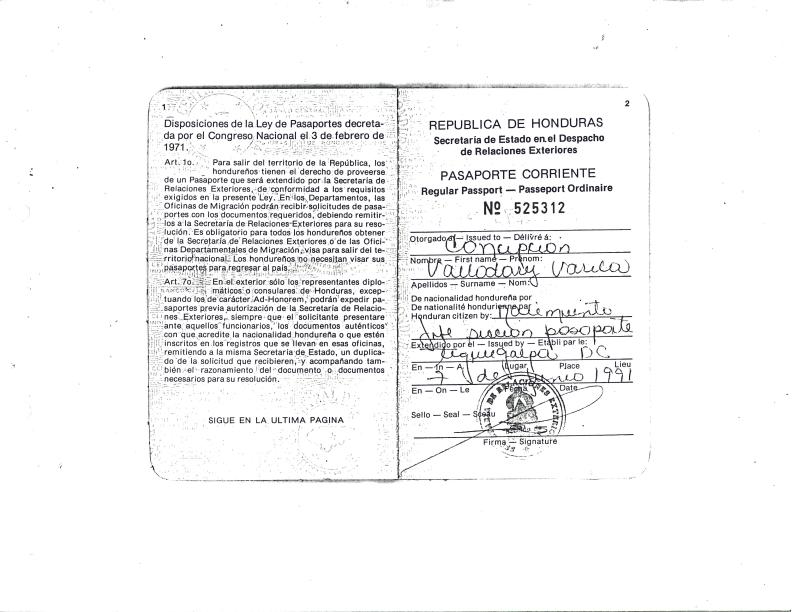 1
Disposiciones de la Ley de Pasaportes decreta-
da por el Congreso Nacional el 3 de febrero de
1971.
Art. 1o. Para salir del territorio de la República, los
hondureños tienen el derecho de proveerse
de un Pasaporte que será extendido por la Secretaría de
Relaciones Exteriores, de conformidad a los requisitos
exigidos en la presente Ley. En los Departamentos, las
Oficinas de Migración podrán recibir solicitudes de pasa-
portes con los documentos requeridos, debiendo remitir-
los a la Secretaría de Relaciones Exteriores para su reso-
lución. Es obligatorio para todos los hondureños obtener
de la Secretaría de Relaciones Exteriores o de las Ofici-
nas Departamentales de Migración, visa para salir del te-
rritorio nacional. Los hondureños no necesitan visar sus
pasaportes para regresar al país.
Art. 7o. En el exterior sólo los representantes diplo-
máticos o consulares de Honduras, excep-
tuando los de carácter Ad-Honorem, podrán expedir pa-
saportes previa autorización de la Secretaría de Relacio-
nes Exteriores, siempre que el solicitante presentare
ante aquellos funcionarios, los documentos auténticos
con que acredite la nacionalidad hondureña o que estén
inscritos en los registros que se llevan en esas oficinas,
remitiendo a la misma Secretaría de Estado, un duplica-
do de la solicitud que recibieren, y acompañando tam-
bién el razonamiento del documento o documentos
necesarios para su resolución.
SIGUE EN LA ULTIMA PAGINA
2
REPUBLICA DE HONDURAS
Secretaría de Estado en el Despacho
de Relaciones Exteriores
PASAPORTE CORRIENTE
Regular Passport — Passeport Ordinaire
Nº 525312
Otorgado a — Issued to — Délivré á:
Concepcion
Nombre — First name — Prénom:
Valladares Varela
Apellidos — Surname — Nom:
De nacionalidad hondureña por
De nationalité hondurienne par
Honduran citizen by: Nacimiento
pasaporte
Extendido por el — Issued by — Etabli par le:
Tegucigalpa DC
En — In — A Lugar Place Lieu
7 de Junio 1991
En — On — Le Fecha Date
Sello — Seal — Sceau
Firma — Signature